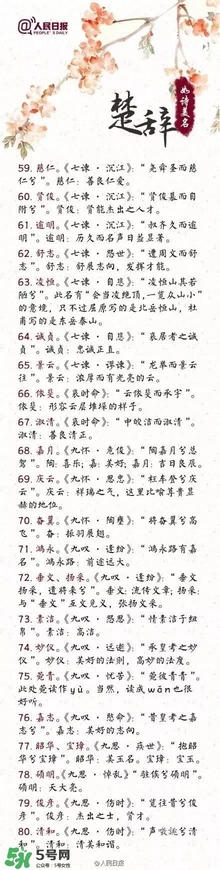 @人民日报
PEOPLE'S DAILY
如诗美名
楚辞
59. 慈仁。《七谏·沉江》：“尧舜圣而
慈仁兮”。慈仁：善良仁爱。
60. 贤俊。《七谏·沉江》：“贤俊慕而自
附兮”。贤俊：贤能杰出之人才。
61. 逾明。《七谏·沉江》：“叔齐久而逾
明”。逾明：历久而名声日益显著。
62. 舒志。《七谏·怨世》：“遭周文而舒
志”。舒志：舒展志向，发挥才能。
63. 凌恒。《七谏·自悲》：“凌恒山其若
陋兮”。此名有“会当凌绝顶，一览众山小”
的意境，只不过屈原写的是北岳恒山，杜
甫写的是东岳泰山。
64. 诚贞。《七谏·自悲》：“哀居者之诚
贞”。诚贞：忠诚正直。
65. 景云。《七谏·谬谏》：“龙举而景云
往”。景云：浓厚而有光亮的云。
66. 依斐。《哀时命》：“云依斐而承宇”。
依斐：形容云层堆垛的样子。
67. 淑清。《哀时命》：“中皎洁而淑清”。
淑清：善良清正。
68. 嘉月。《九怀·危俊》：“陶嘉月兮总
驾”。陶：喜乐；嘉：美好；嘉月：吉日良辰。
69. 庆云。《九怀·思忠》：“枉车登兮庆
云”。庆云：祥瑞之气，这里比喻尊贵显
赫的地位。
70. 奋翼。《九怀·陶壅》：“将奋翼兮高
飞”。奋：振羽展翅。
71. 鸿永。《九叹·逢纷》：“鸿永路有嘉
名”。鸿永路：前途远大。
72. 垂文、扬采。《九叹·逢纷》：“垂文
扬采，遗将来兮”。垂文：流传文章；扬采：
与“垂文”互文见义，张扬文采。
73. 素洁。《九叹·怨思》：“情素洁于纽
帛”。素洁：高洁。
74. 妙仪。《九叹·远逝》：“承皇考之妙
仪”。妙仪：美好的法则，高妙的法度。
75. 菀青。《九叹·忧苦》：“菀彼青青”。
此处菀读作yù。当然，读成wǎn也很
好听。
76. 嘉志。《九叹·愍命》：“昔皇考之嘉
志兮”。嘉志：美好的志向。
77. 昭华、宝璋。《九思·疾世》：“抱昭
华兮宝璋”。昭华：美玉名。宝璋：玉。
78. 硕明。《九思·悼乱》“跓俟兮硕明”。
硕明：天大亮。
79. 俊彦。《九思·伤时》：“览往昔兮俊
彦”。俊彦：杰出之士，贤才。
80. 清和。《九思·伤时》：“声噭誂兮清
和”。清和：清美和谐。
5号网
公众号：5号女性
@人民日报